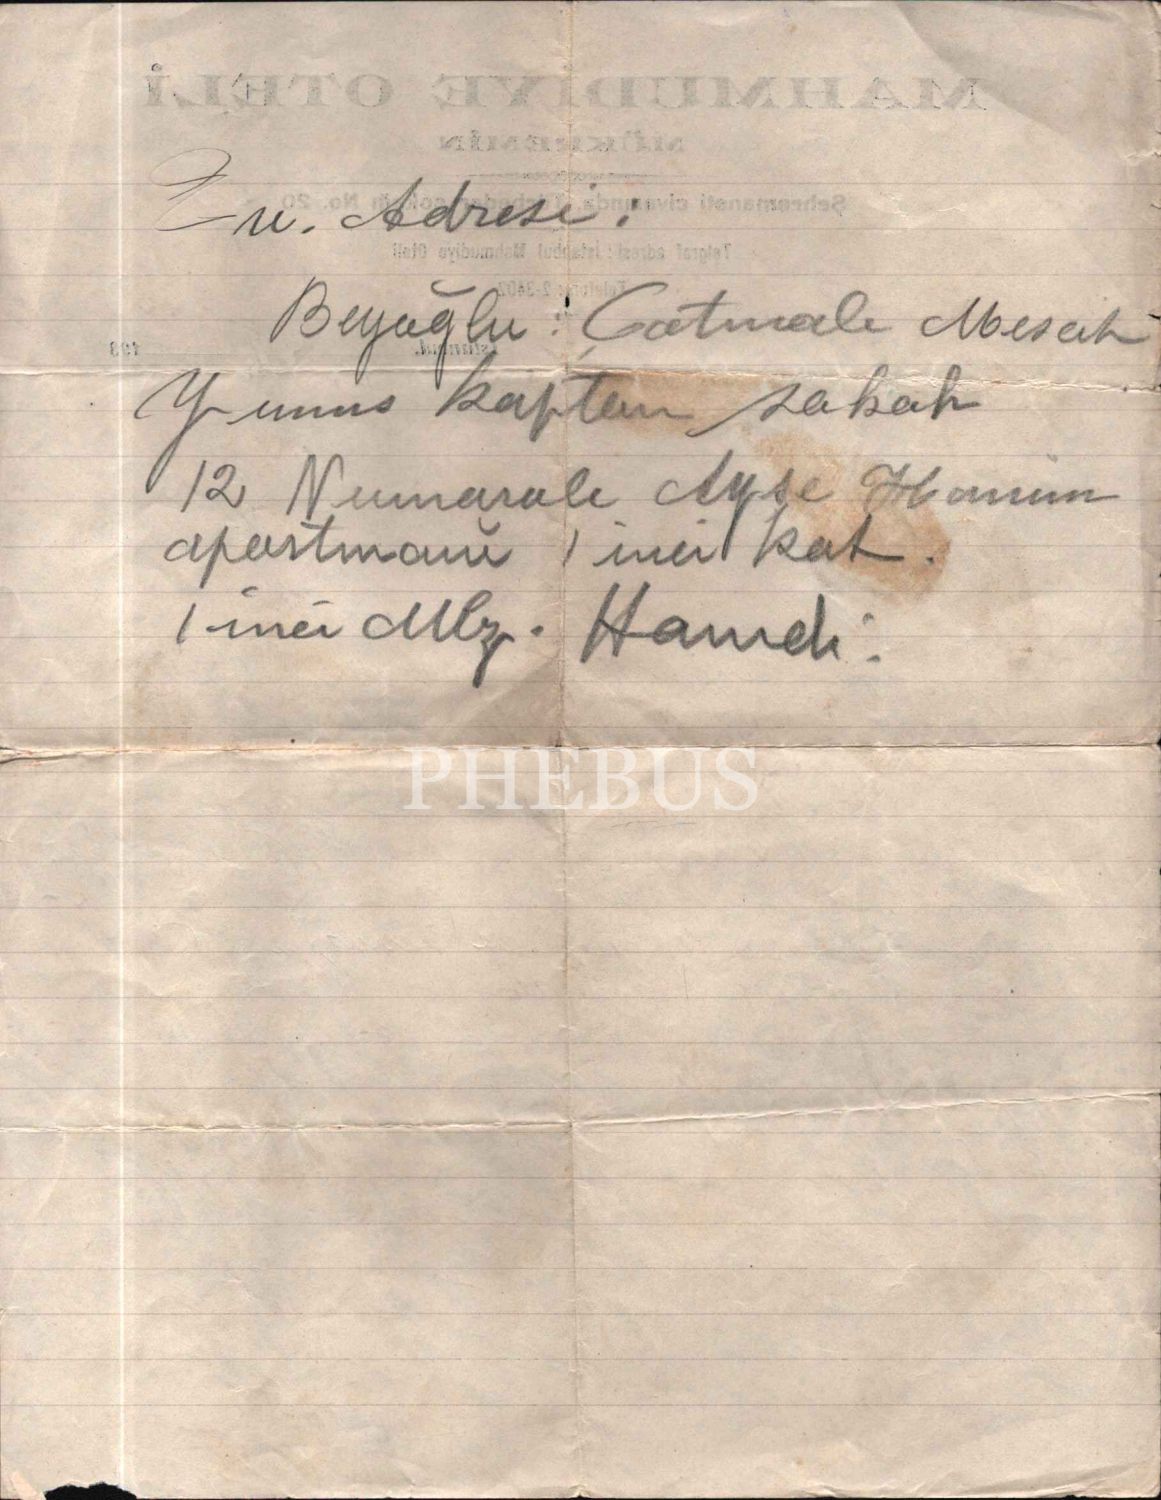 MAHMUDİYE OTELİ
MÜKREMİN
Şehremaneti civarında, No. 20
Telgraf adresi: İstanbul Mahmudiye Oteli
Telefon: 2-3402
İstanbul, 193
Ev. Adresi:
Beyoğlu: Çatmale Mescit
Yunus kaptan sakak
12 Numarale Ayşe Hanım
apartmanı 1 inci kat.
1 inci Mlz. Hamdi.
PHEBUS